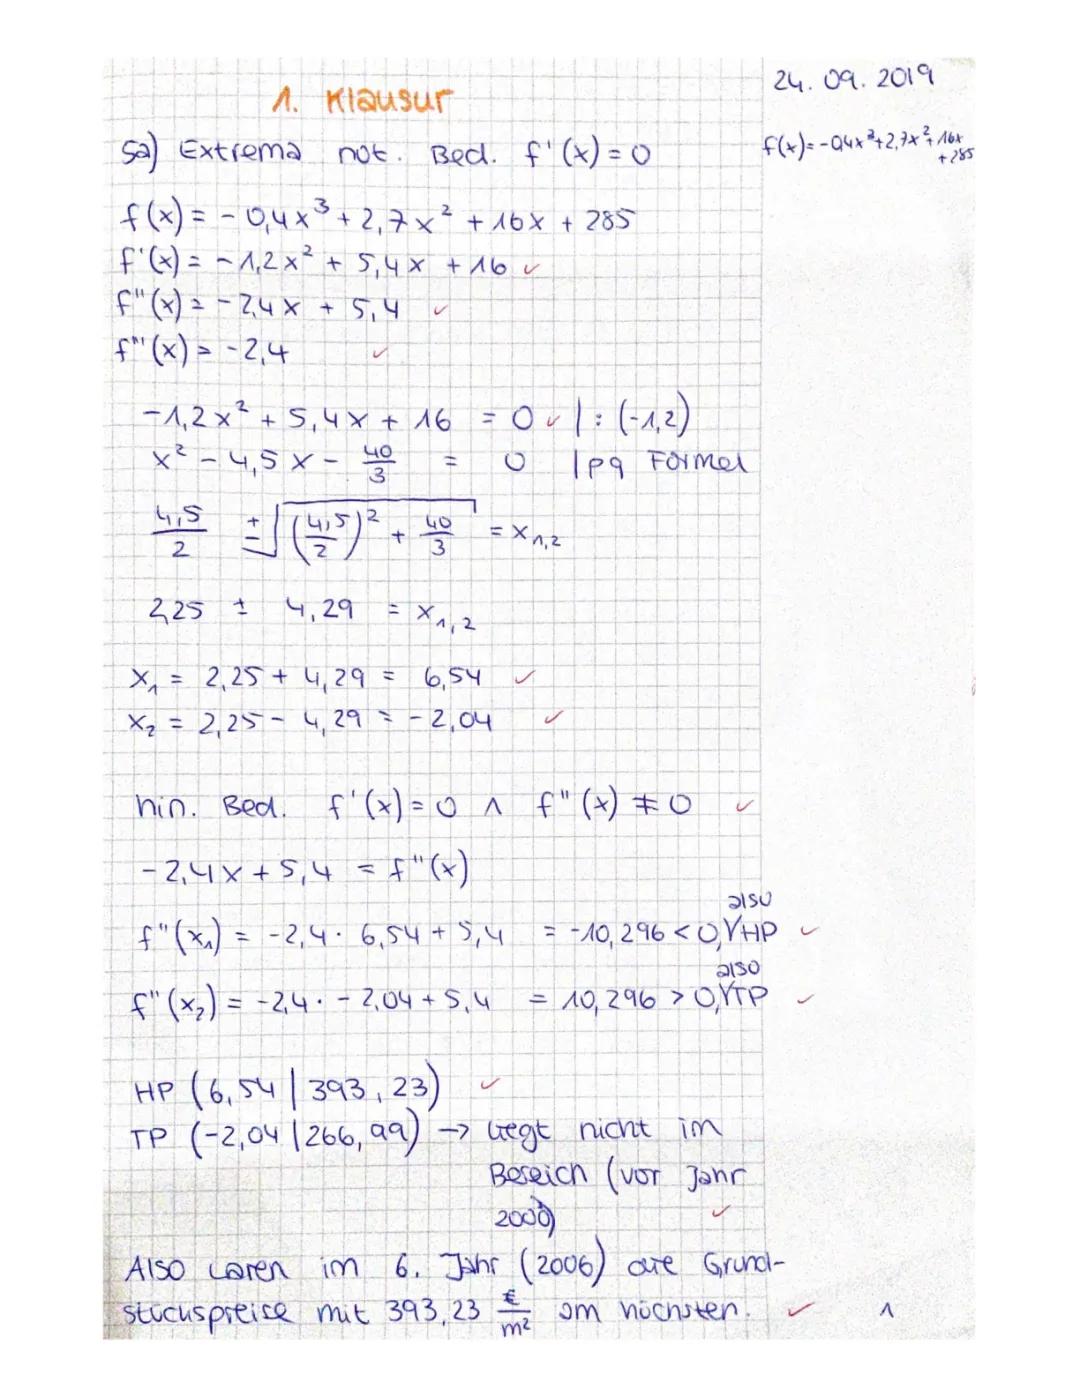 24.09.2019
1. Klausur
5a) Extrema not. Bed. f'(x) = 0
f(x) = -0,4x³+2,7x²+16x
+285
f(x) = -0,4x³ + 2,7x² + 16x + 285
f'(x) = -1,2x² + 5,4x + 16 ✓
f''(x) = -2,4x + 5,4 ✓
f'''(x) = -2,4 ✓
-1,2x² + 5,4x + 16 = 0 ✓ | : (-1,2)
x² - 4,5x - 40/3 = 0 | pq Formel
4,5/2 ± √((4,5/2)² + 40/3) = x₁,₂
2,25 ± 4,29 = x₁,₂
x₁ = 2,25 + 4,29 = 6,54 ✓
x₂ = 2,25 - 4,29 = -2,04 ✓
hin. Bed. f'(x) = 0 ∧ f''(x) ≠ 0 ✓
-2,4x + 5,4 = f''(x)
f''(x₁) = -2,4 · 6,54 + 5,4 = -10,296 < 0, also HP ✓
f''(x₂) = -2,4 · -2,04 + 5,4 = 10,296 > 0, also TP ✓
HP (6,54 | 393,23) ✓
TP (-2,04 | 266,99) → liegt nicht im
Bereich (vor Jahr
2000) ✓
Also waren im 6. Jahr (2006) die Grund-
stückspreise mit 393,23 €/m² am höchsten. ✓ 1